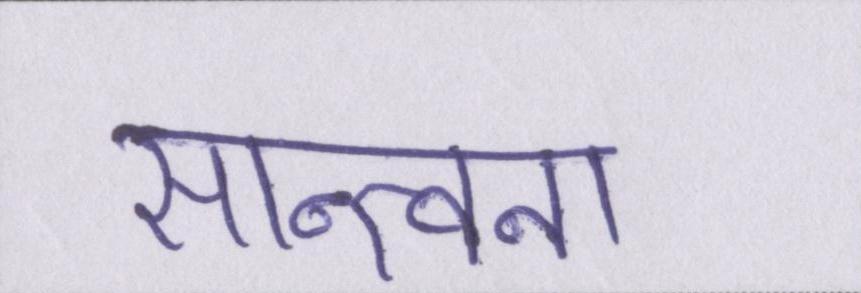 सान्त्वना